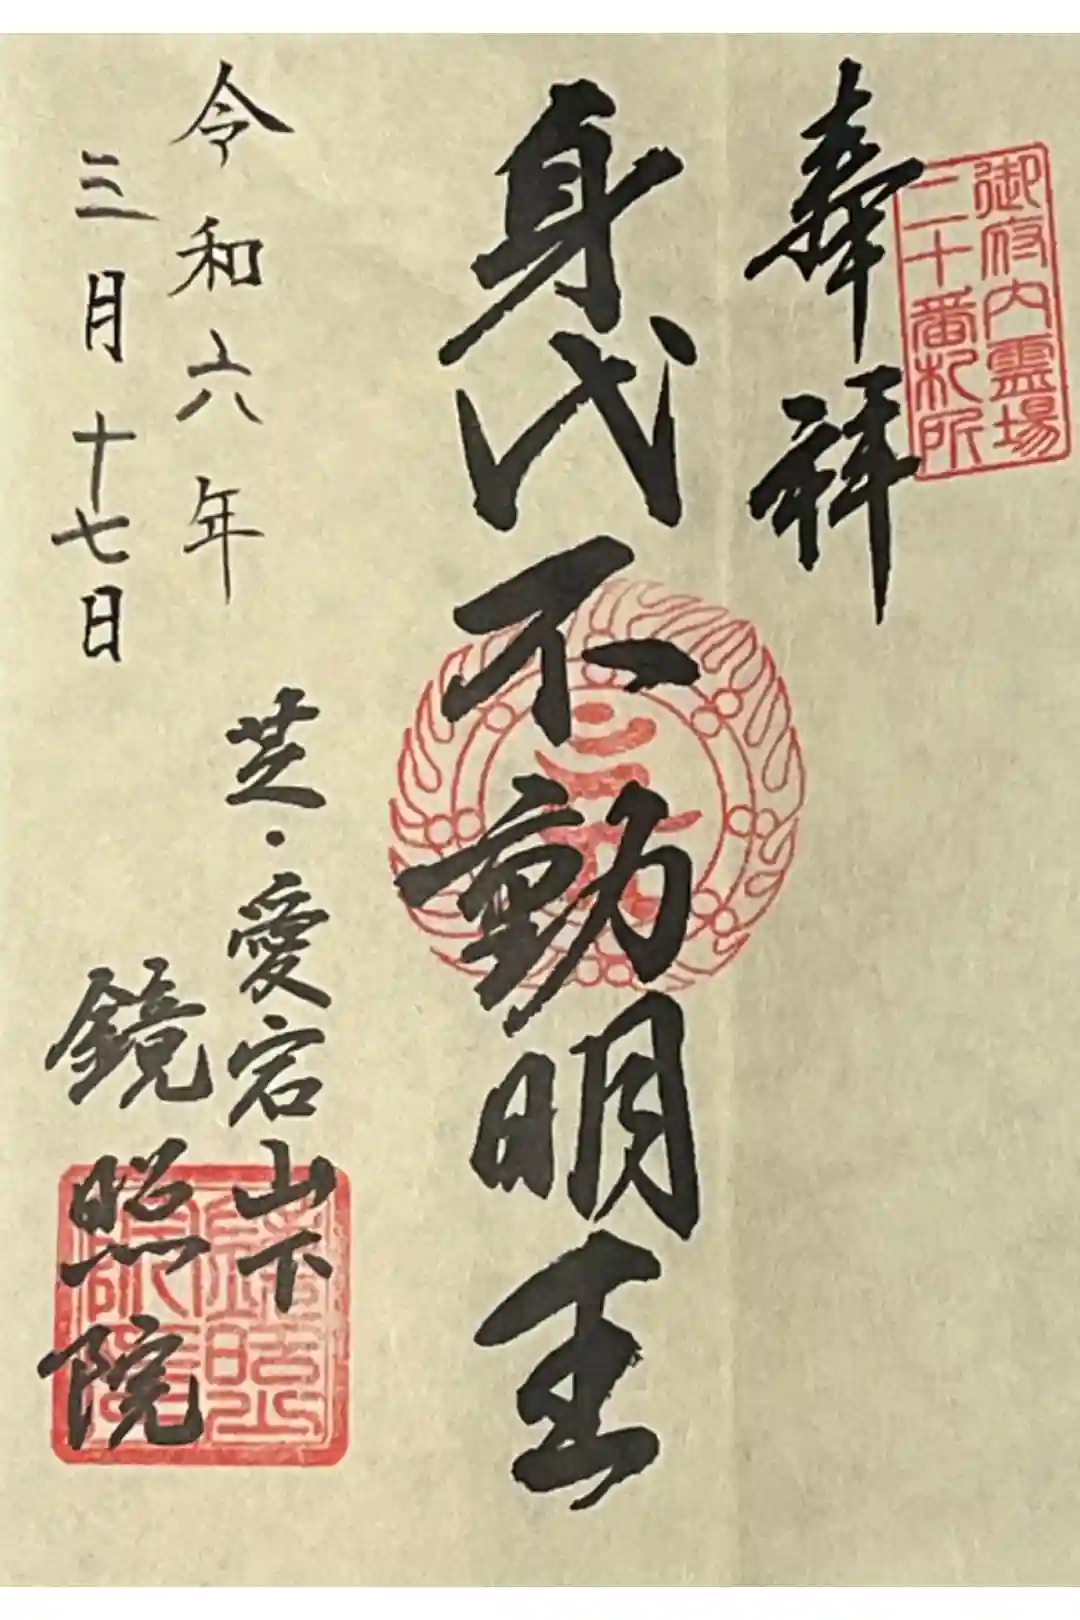 御府内霊場
二十番札所
奉拝
身代不動明王
令和六年
三月十七日
芝・愛宕山下
鏡照院